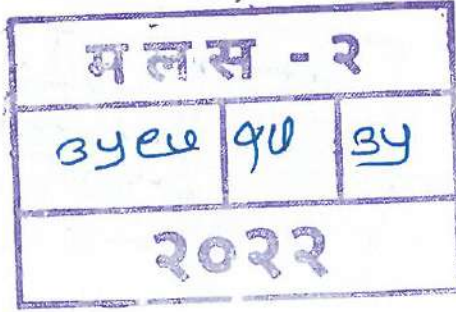 मलस - २
३५९७ १७ ३५
२०२२